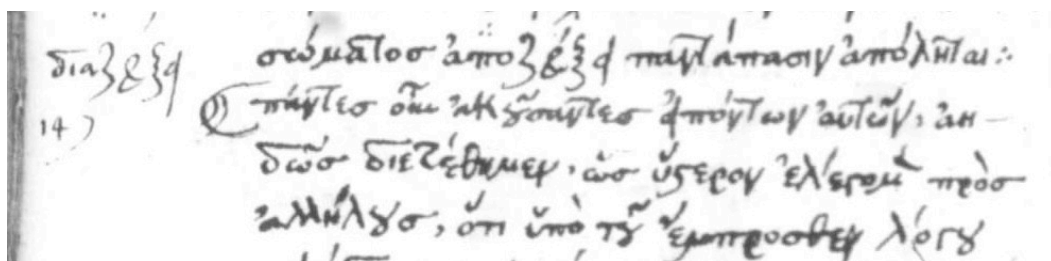 διαζεύξει σώματος ἀποζεύξει παντάπασιν ἀπόληται:·
14) πάντες οὖν ἀκούσαντες εἰπόντων αὐτῶν, ἀη-
δῶς διετέθημεν, ὡς ὕστερον ἐλέγομεν πρὸς
ἀλλήλους, ὅτι ὑπὸ τοῦ ἔμπροσθεν λόγου